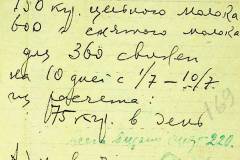 150 кгр. цельного молока
600 " снятого молока
для 360 свиней
на 10 дней с 1/7 – 10/7
из расчета:
75 кгр. в день
169
220.